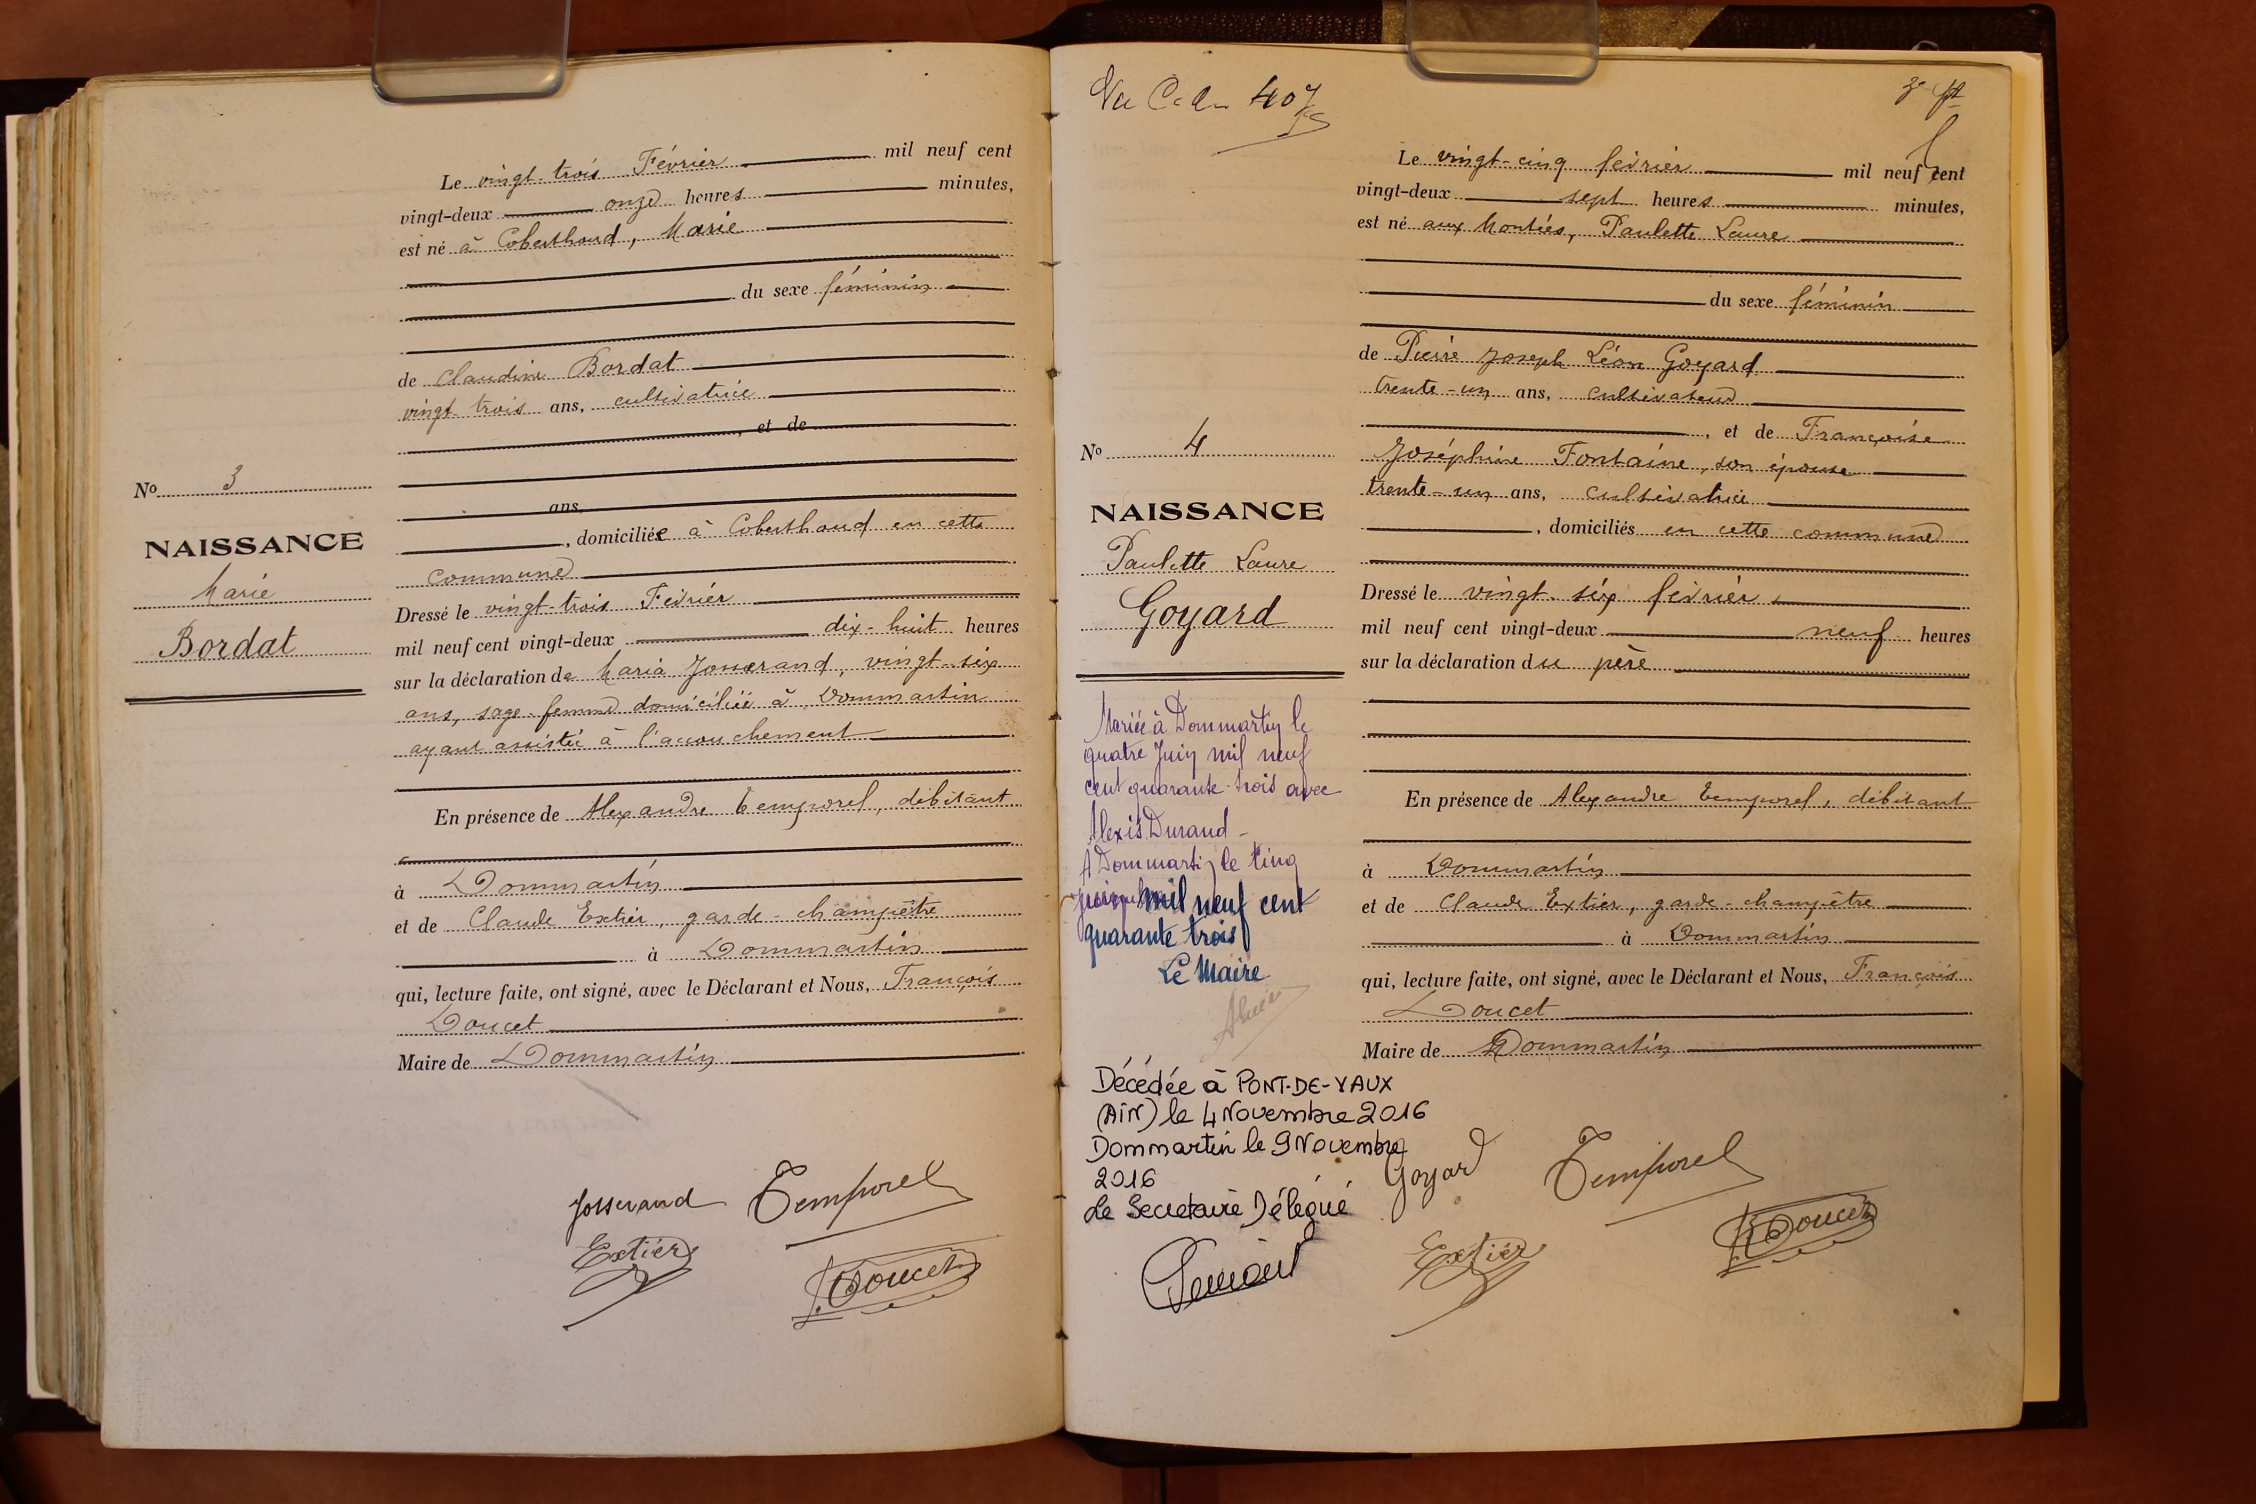 Le vingt-trois Février mil neuf cent
vingt-deux onze heures minutes,
est né à Coberthoud, Marie
du sexe féminin
de Claudine Bordat
vingt-trois ans, cultivatrice
, et de
ans,
, domiciliée à Coberthoud en cette
commune
Dressé le vingt-trois Février
mil neuf cent vingt-deux dix-huit heures
sur la déclaration de Maria Josserand, vingt-six
ans, sage-femme domiciliée à Dommartin
ayant assistée à l'accouchement
En présence de Alexandre Temporel, débitant
à Dommartin
et de Claude Extier, garde-champêtre
à Dommartin
qui, lecture faite, ont signé, avec le Déclarant et Nous, François
Doucet
Maire de Dommartin
No 3
NAISSANCE
Marie
Bordat
Josserand Temporel
Extier F. Doucet
Vu 407
Le vingt-cinq février mil neuf cent
vingt-deux sept heures minutes,
est né aux Montées, Paulette Laure
du sexe féminin
de Pierre Joseph Léon Goyard
trente-un ans, cultivateur
, et de Françoise
Joséphine Fontaine, son épouse
trente-un ans, cultivatrice
, domiciliés en cette commune
Dressé le vingt-six février
mil neuf cent vingt-deux neuf heures
sur la déclaration du père
En présence de Alexandre Temporel, débitant
à Dommartin
et de Claude Extier, garde-champêtre
à Dommartin
qui, lecture faite, ont signé, avec le Déclarant et Nous, François
Doucet
Maire de Dommartin
No 4
NAISSANCE
Paulette Laure
Goyard
Mariée à Dommartin le
quatre Juin mil neuf
cent quarante-trois avec
Alexis Durand -
A Dommartin le Cinq
mil neuf cent
quarante trois
Le Maire
Décédée à PONT-DE-VAUX
(AIN) le 4 Novembre 2016
Dommartin le 9 Novembre
2016
Le Secretaire Délégué
Goyard Temporel
Extier F. Doucet